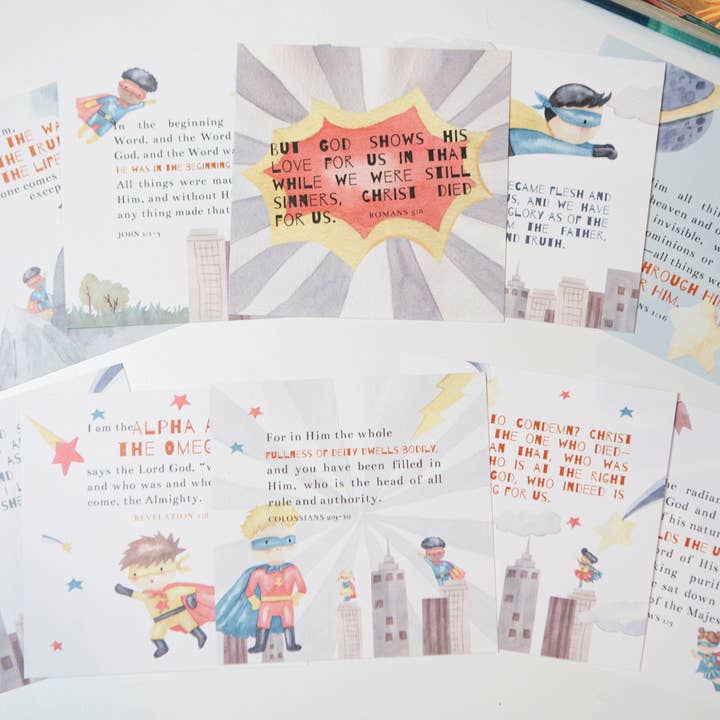 THE WA
THE TRUT
THE LIFE
one comes
excep
In the beginning
Word, and the Word
God, and the Word wa
HE WAS IN THE BEGINNING
All things were mad
Him, and without H
any thing made that
JOHN 1:1-3
BUT GOD SHOWS HIS
LOVE FOR US IN THAT
WHILE WE WERE STILL
SINNERS, CHRIST DIED
FOR US.
ROMANS 5:8
CAME FLESH AND
US, AND WE HAVE
GLORY AS OF THE
M THE FATHER,
ND TRUTH.
im all thi
heaven and o
invisible,
ominions or
—all things we
THROUGH HI
R HIM.
NS 1:16
I am the ALPHA A
THE OMEG
says the Lord God, “w
and who was and who
come, the Almighty.
REVELATION 1:8
For in Him the whole
FULLNESS OF DEITY DWELLS BODILY,
and you have been filled in
Him, who is the head of all
rule and authority.
COLOSSIANS 2:9-10
TO CONDEMN? CHRIST
THE ONE WHO DIED—
AN THAT, WHO WAS
HO IS AT THE RIGHT
GOD, WHO INDEED IS
G FOR US.
he radian
God and
f his natur
LDS THE U
ord of His
king purif
e sat down
of the Majes
WS 1:3